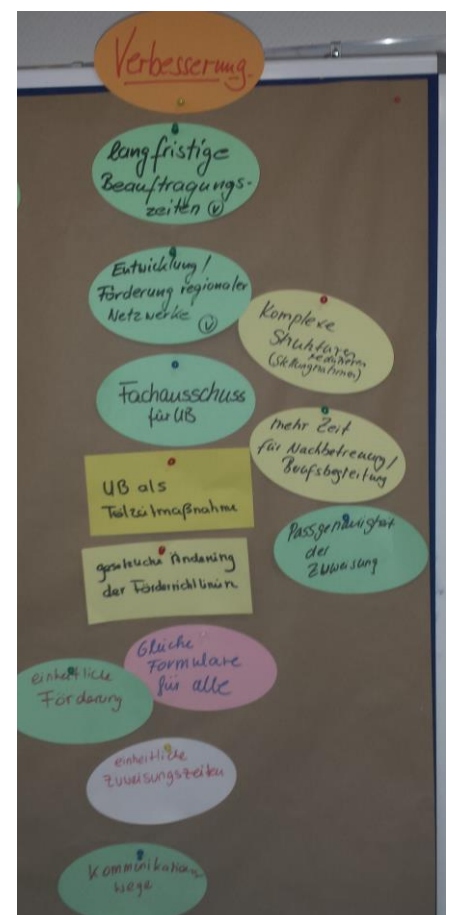 Verbesserung
langfristige
Beauftragungs-
zeiten Ⓥ
Entwicklung/
Förderung regionaler
Netzwerke Ⓥ
Komplexe
Strukturen
reduzieren
(Stellungnahmen)
Fachausschuss
für UB
mehr Zeit
für Nachbetreuung/
Berufsbegleitung
UB als
Teilzeitmaßnahme
Passgenauigkeit
der
Zuweisung
gesetzliche Änderung
der Förderrichtlinien
Gleiche
Formulare
für alle
einheitliche
Förderung
einheitliche
Zuweisungszeiten
Kommunikations
wege